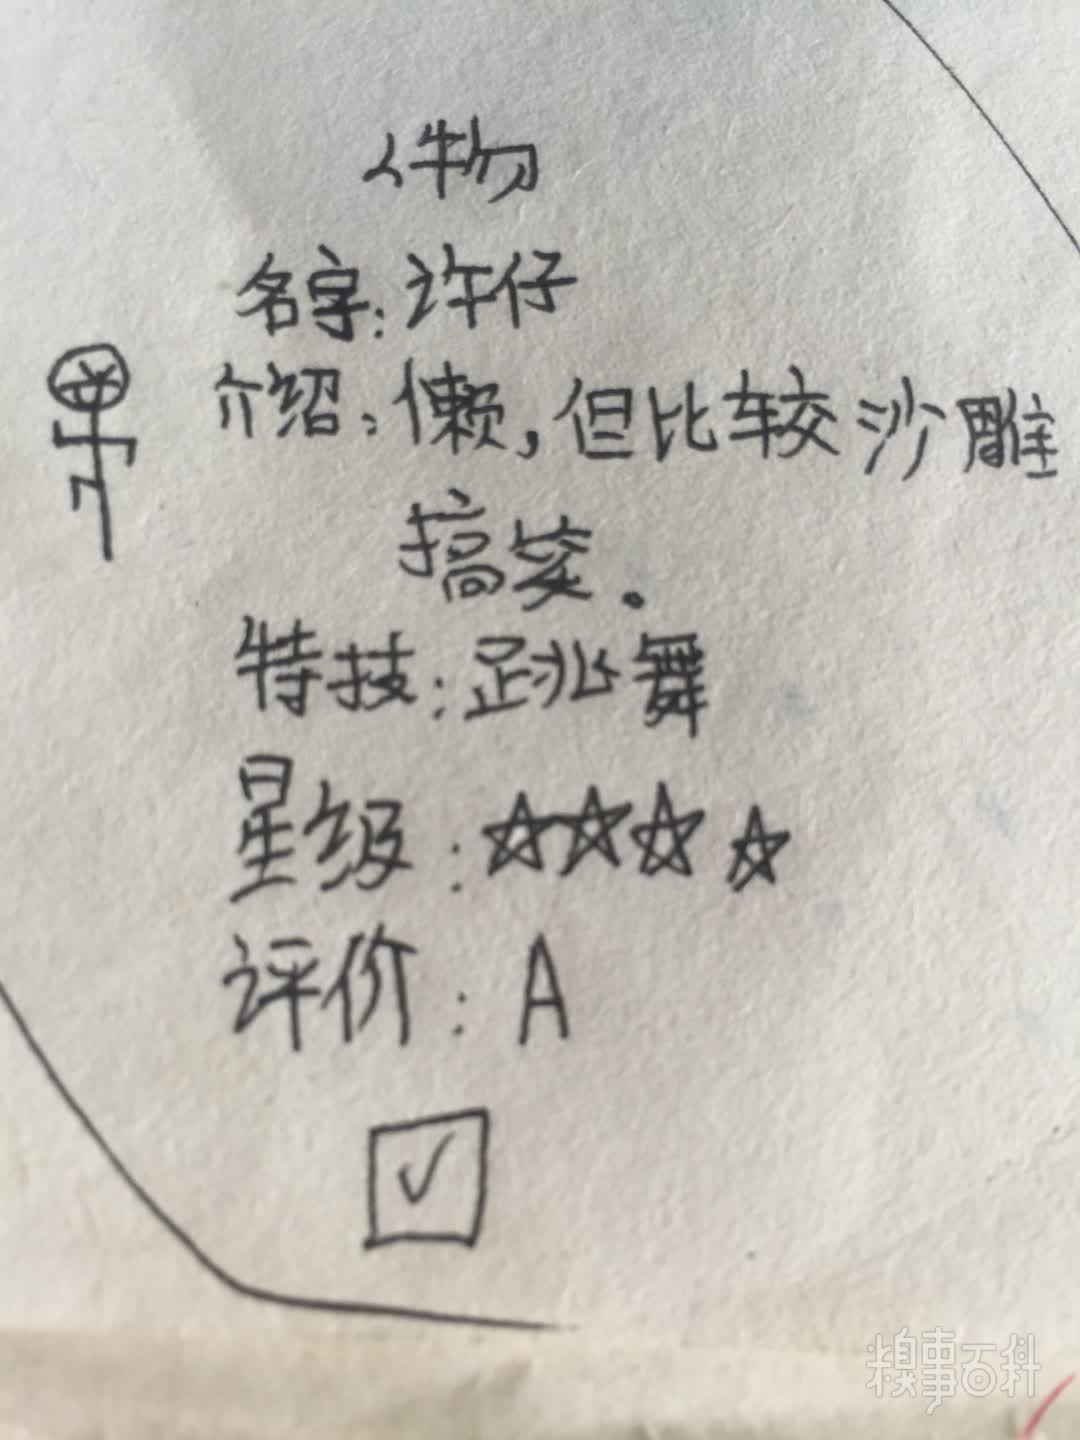 人物
名字:许仔
介绍:懒,但比较沙雕
搞笑.
特技:跳舞
星级:☆☆☆☆
评价:A
糗事百科